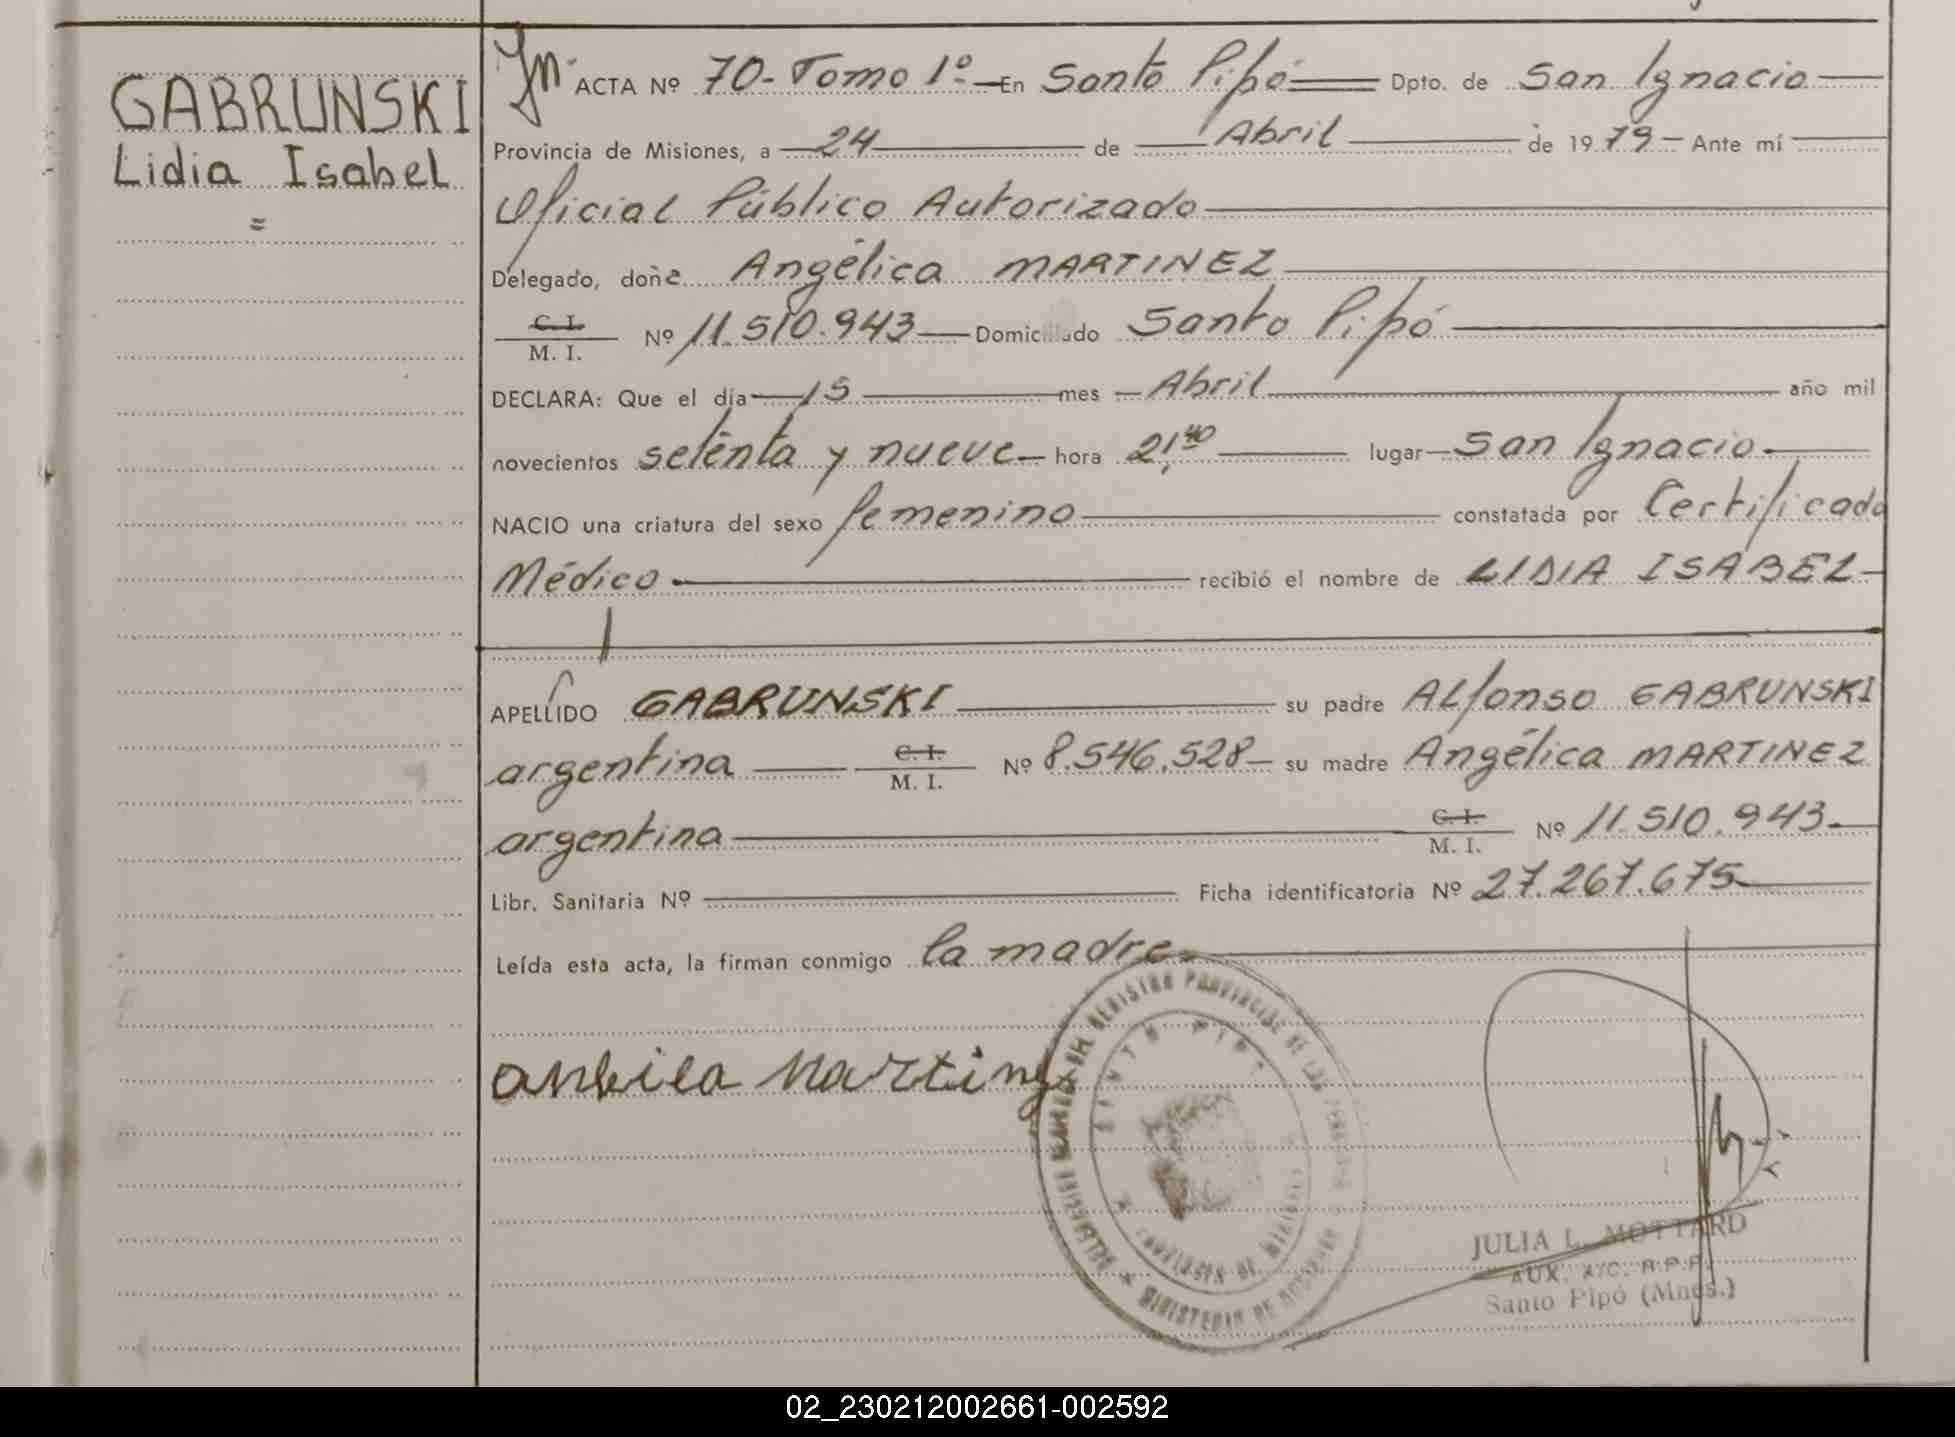 GABRUNSKI
Lidia Isabel
=
ACTA Nº 70- Tomo 1º - En Santo Pipó Dpto. de San Ignacio
Provincia de Misiones, a 24 de Abril de 1979 - Ante mí
Oficial Público Autorizado
Delegado, doña Angélica MARTINEZ
C. I. / M. I. Nº 11.510.943 Domiciliado Santo Pipó
DECLARA: Que el día 15 mes Abril año mil
novecientos setenta y nueve hora 21,40 lugar San Ignacio
NACIO una criatura del sexo femenino constatada por Certificado
Médico recibió el nombre de LIDIA ISABEL
APELLIDO GABRUNSKI su padre Alfonso GABRUNSKI
argentina C. I. / M. I. Nº 8.546.528 su madre Angélica MARTINEZ
argentina C. I. / M. I. Nº 11.510.943
Libr. Sanitaria Nº Ficha identificatoria Nº 27.267.675
Leída esta acta, la firman conmigo la madre
REGISTRO PROVINCIAL DE LAS
SANTO PIPO
MINISTERIO DE GOBIERNO
MISIONES
JULIA L. MOTTARD
AUX. A/C. R.P.P.
Santo Pipó (Mnes.)
02_230212002661-002592